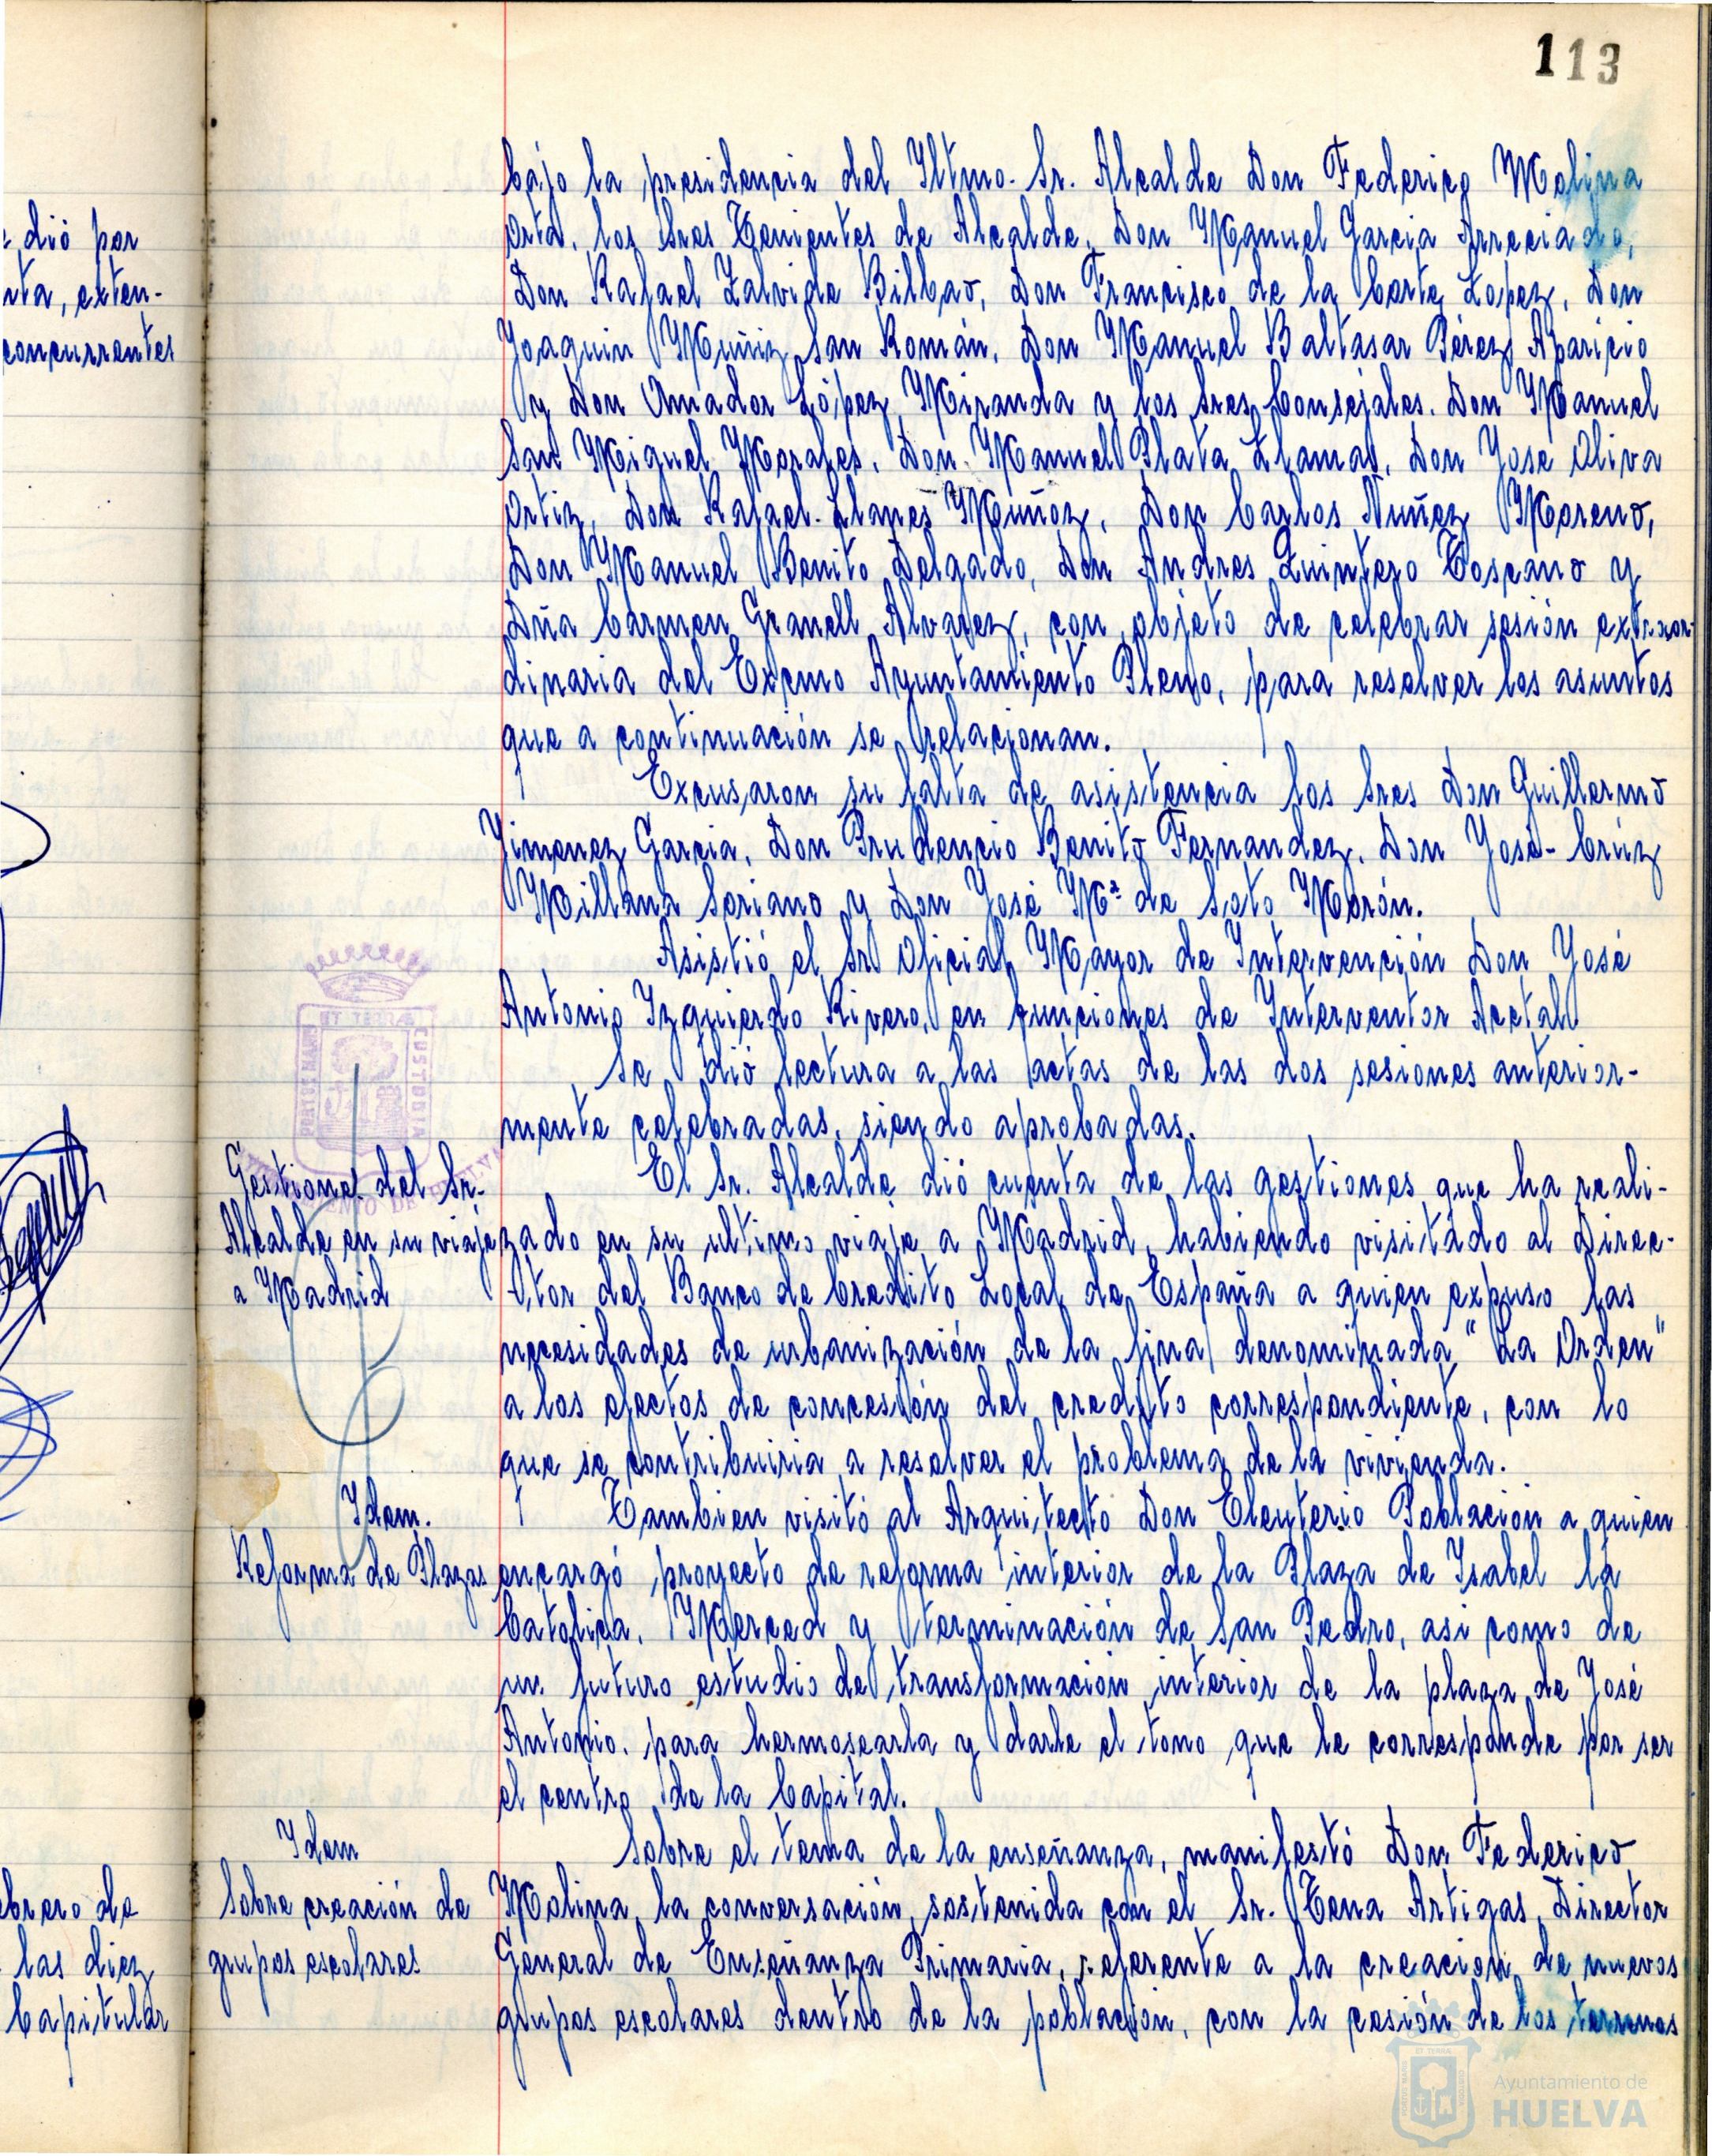 113
e dió por
nta, exten-
concurrentes
bajo la presidencia del Iltmo. Sr. Alcalde Don Federico Molina
Orta, los Sres Tenientes de Alcalde, Don Manuel Garcia Arreciado,
Don Rafael Zalvide Bilbao, Don Francisco de la Corte Lopez, Don
Joaquin Muñiz San Román, Don Manuel Baltasar Pérez Aparicio
y Don Amador López Miranda y los Sres Consejales. Don Manuel
San Miguel Morales, Don Manuel Plata Llamas, Don Jose Oliva
Ortiz, Don Rafael Llanes Muñoz, Don Carlos Nuñez Moreno,
Don Manuel Benito Delgado, Don Andres Quintero Toscano y
Dña Carmen Granell Alvarez, con objeto de celebrar sesión extraor-
dinaria del Excmo Ayuntamiento Pleno, para resolver los asuntos
que a continuación se relacionan.
Excusaron su falta de asistencia los Sres Don Guillermo
Jimenez Garcia, Don Prudencio Benito Fernandez, Don José-Cruz
Millana Soriano y Don José Mª de Soto Morón.
Asistió el Sr Oficial Mayor de Intervención Don José
Antonio Izquierdo Rivero, en funciones de Interventor Acctal.
Se dió lectura a las actas de las dos sesiones anterior-
mente celebradas, siendo aprobadas.
PORTUS MARIS ET TERRAE CUSTODIA
AYUNTAMIENTO DE HUELVA
Gestiones del Sr.
Alcalde en su viaje
a Madrid
El Sr. Alcalde dió cuenta de las gestiones que ha reali-
zado en su ultimo viaje a Madrid, habiendo visitado al Direc-
tor del Banco de Credito Local de España a quien expuso las
necesidades de urbanización de la finca denominada "La Orden"
a los efectos de concesión del credito correspondiente, con lo
que se contribuiria a resolver el problema de la vivienda.
Idem.
Reforma de Plazas
Tambien visitó al Arquitecto Don Eleuterio Población a quien
encargó proyecto de reforma interior de la Plaza de Isabel la
Catolica, Merced y terminación de San Pedro, asi como de
un futuro estudio de transformación interior de la plaza de José
Antonio, para hermosearla y darle el tono que le corresponde por ser
el centro de la Capital.
Idem
Sobre creación de
grupos escolares
Sobre el tema de la enseñanza, manifestó Don Federico
Molina la conversación sostenida con el Sr. Tena Artigas, Director
General de Enseñanza Primaria, referente a la creación de nuevos
grupos escolares dentro de la población, con la cesión de los terrenos
ebrero de
las diez
Capitular
Ayuntamiento de
HUELVA